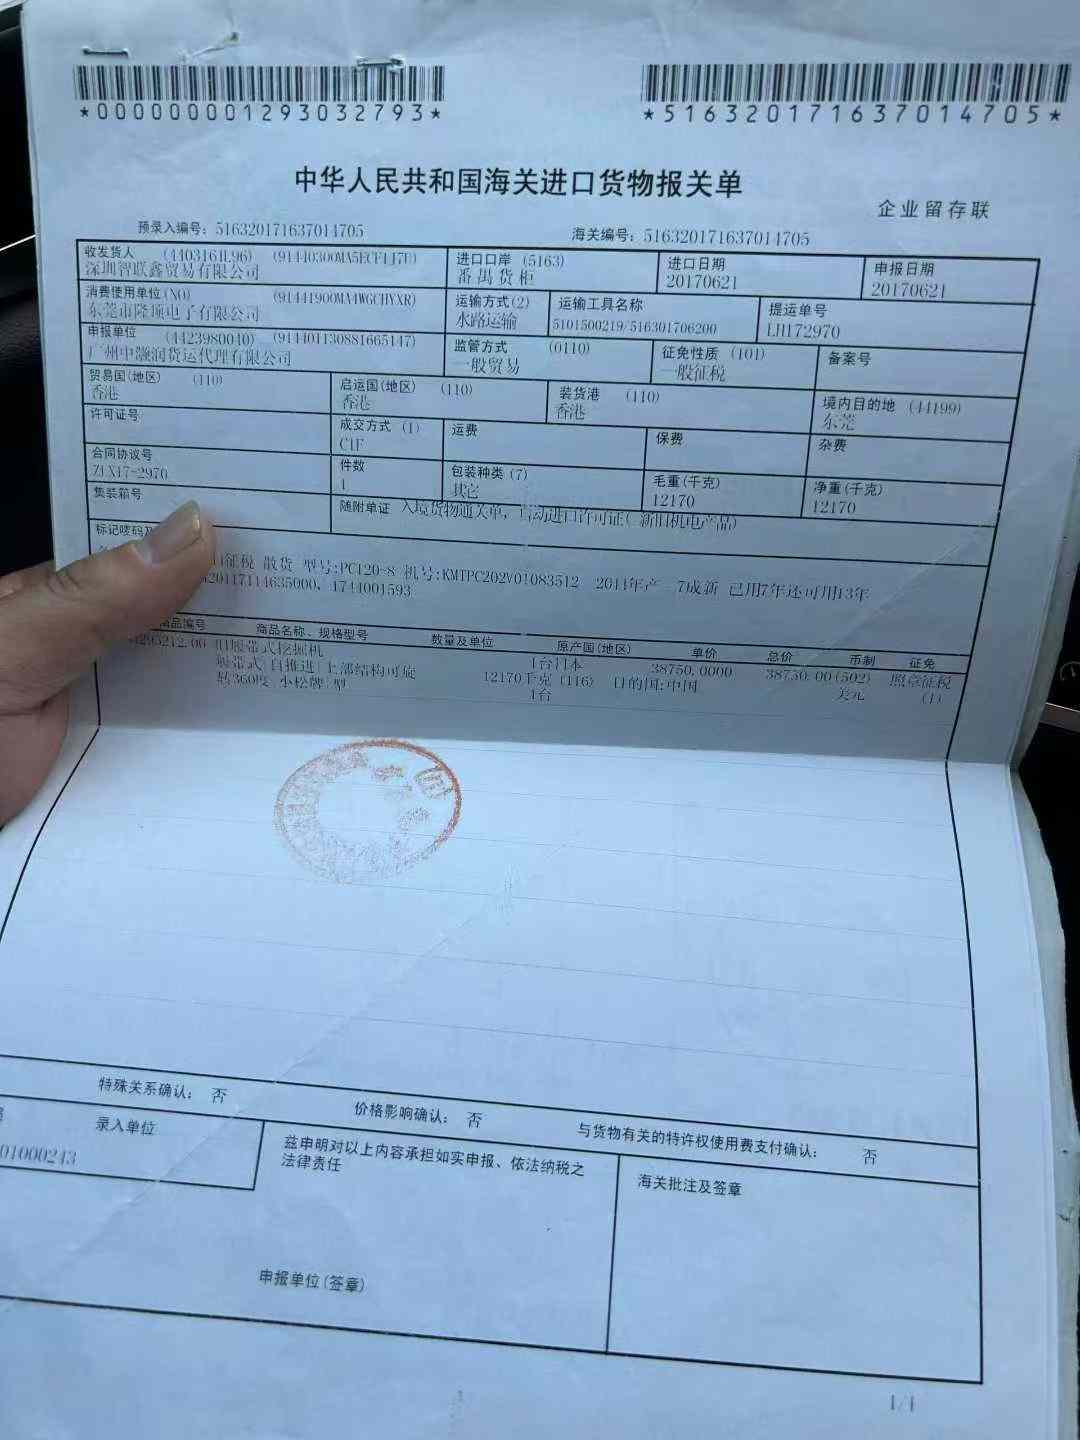 *000000001293032793*
*516320171637014705*
中华人民共和国海关进口货物报关单
企业留存联
预录入编号: 516320171637014705
海关编号: 516320171637014705
收发货人 (4403161L96)
深圳智联鑫贸易有限公司
进口口岸 (5163)
番禺货柜
进口日期
20170621
申报日期
20170621
消费使用单位(NO) (91441900MA4WGCHYXR)
东莞市隆顶电子有限公司
运输方式(2)
水路运输
运输工具名称
5101500219/516301706200
提运单号
LH172970
申报单位 (4423980040) (914401130881665147)
广州中灏润货运代理有限公司
监管方式 (0110)
一般贸易
征免性质 (101)
一般征税
备案号
贸易国(地区) (110)
香港
启运国(地区) (110)
香港
装货港 (110)
香港
境内目的地 (44199)
东莞
许可证号
成交方式 (1)
CIF
运费
保费
杂费
合同协议号
ZLX17-2970
件数
1
包装种类 (7)
其它
毛重(千克)
12170
净重(千克)
12170
集装箱号
随附单证 入境货物通关单, 自动进口许可证(新旧机电产品)
标记唛码及
征税 散货 型号:PC120-8 机号:KMTPC202V01083512 2011年产 7成新 已用7年还可用13年
20117114635000、1744001593
商品编号 商品名称、规格型号 数量及单位 原产国(地区) 单价 总价 币制 征免
295212.00 旧履带式挖掘机 1台日本 38750.0000 38750.00(502) 照章征税
履带式 自推进 上部结构可旋 12170千克 (116) 目的国:中国 美元 (1)
转360度 小松牌 型 1台
特殊关系确认: 否 价格影响确认: 否 与货物有关的特许权使用费支付确认: 否
录入单位
01000243
兹申明对以上内容承担如实申报、依法纳税之
法律责任
海关批注及签章
申报单位(签章)
1/1